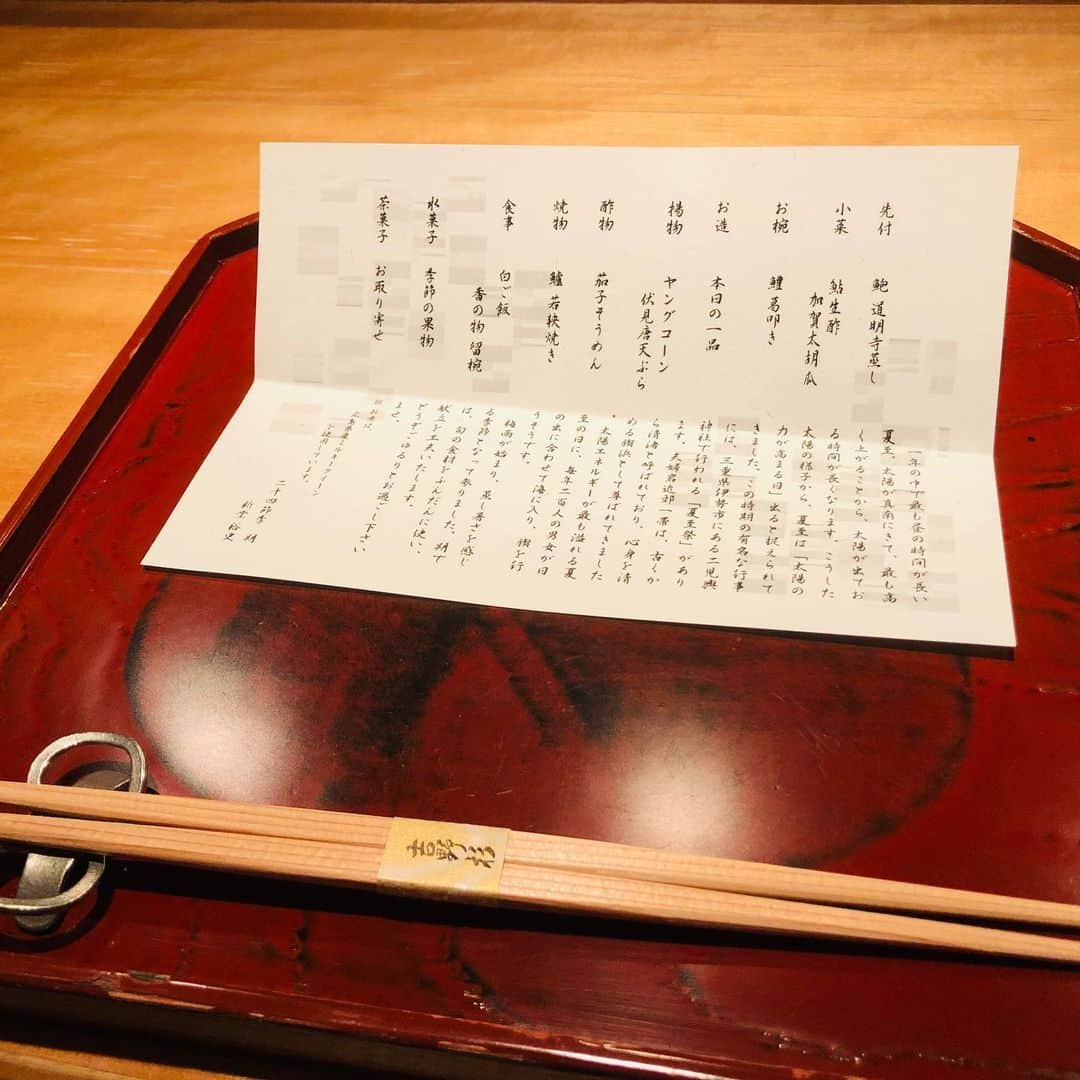 先付 鮑 道明寺蒸し
小菜 鮎生酢
加賀太胡瓜
お椀 鱧 葛叩き
お造 本日の一品
揚物 ヤングコーン
伏見唐天ぷら
酢物 茄子そうめん
焼物 鱸 若狭焼き
食事 白ご飯
香の物 留椀
水菓子 季節の果物
茶菓子 お取り寄せ
一年の中で最も昼の時間が長い
夏至。太陽が真南にきて、最も高
く上がることから、太陽が出てお
る時間が長くなります。こうした
太陽の様子から、夏至は「太陽の
力が高まる日」出ると捉えられて
きました。この時期の有名な行事
には、三重県伊勢市にある二見興
神社で行われる「夏至祭」があり
ます。夫婦岩近郊一帯は、古くか
ら清渚と呼ばれており、心身を清
める禊浜として尊ばれてきました
。太陽エネルギーが最も溢れる夏
至の日に、毎年二百人の男女が日
の出に合わせて海に入り、禊を行
うそうです。
梅雨が始まり、蒸し暑さを感じ
る季節となって参りました。朔で
は、旬の食材をふんだんに使い、
献立を工夫いたします。
どうぞごゆるりとお過ごし下さい
ませ。
お米は、
広島県産ミルキークイーン
を使用しています。
二十四節季 朔
新宮 裕史
吉野杉